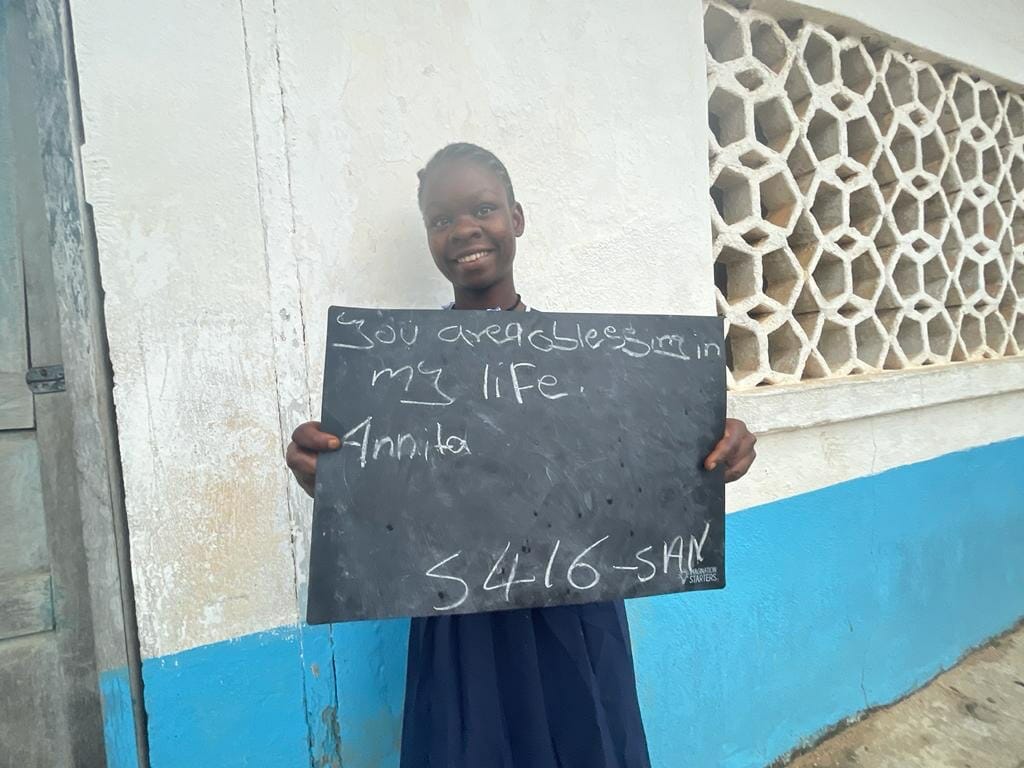 You are a blessing in
my life.
Annita
S416-SAN
IMAGINATION
STARTERS